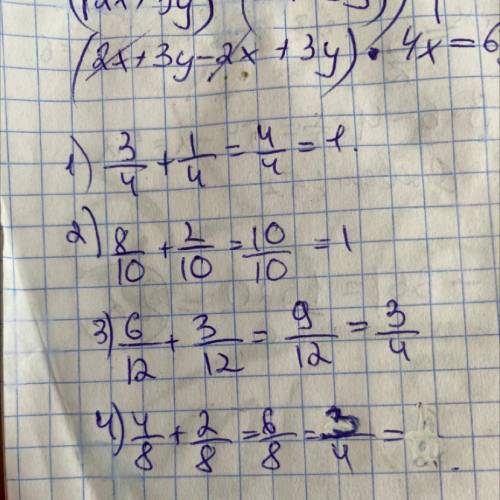 (2x+3y-2x+3y)·4x=6
1) 3/4 + 1/4 = 4/4 = 1.
2) 8/10 + 2/10 = 10/10 = 1
3) 6/12 + 3/12 = 9/12 = 3/4
4) 4/8 + 2/8 = 6/8 = 3/4 =